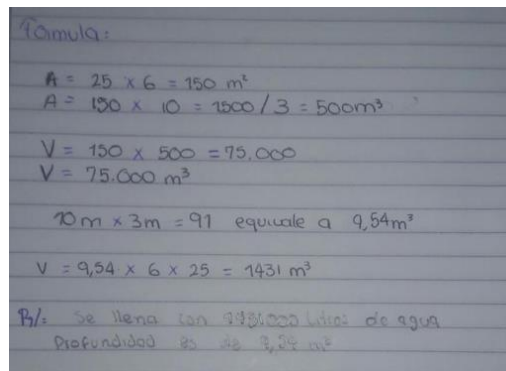 Fórmula:
A = 25 x 6 = 150 m²
A = 150 x 10 = 1500 / 3 = 500m³
V = 150 x 500 = 75.000
V = 75.000 m³
10m x 3m = 91 equivale a 9,54m³
V = 9,54 x 6 x 25 = 1431 m³
R/: Se llena con litros de agua
Profundidad es de m³